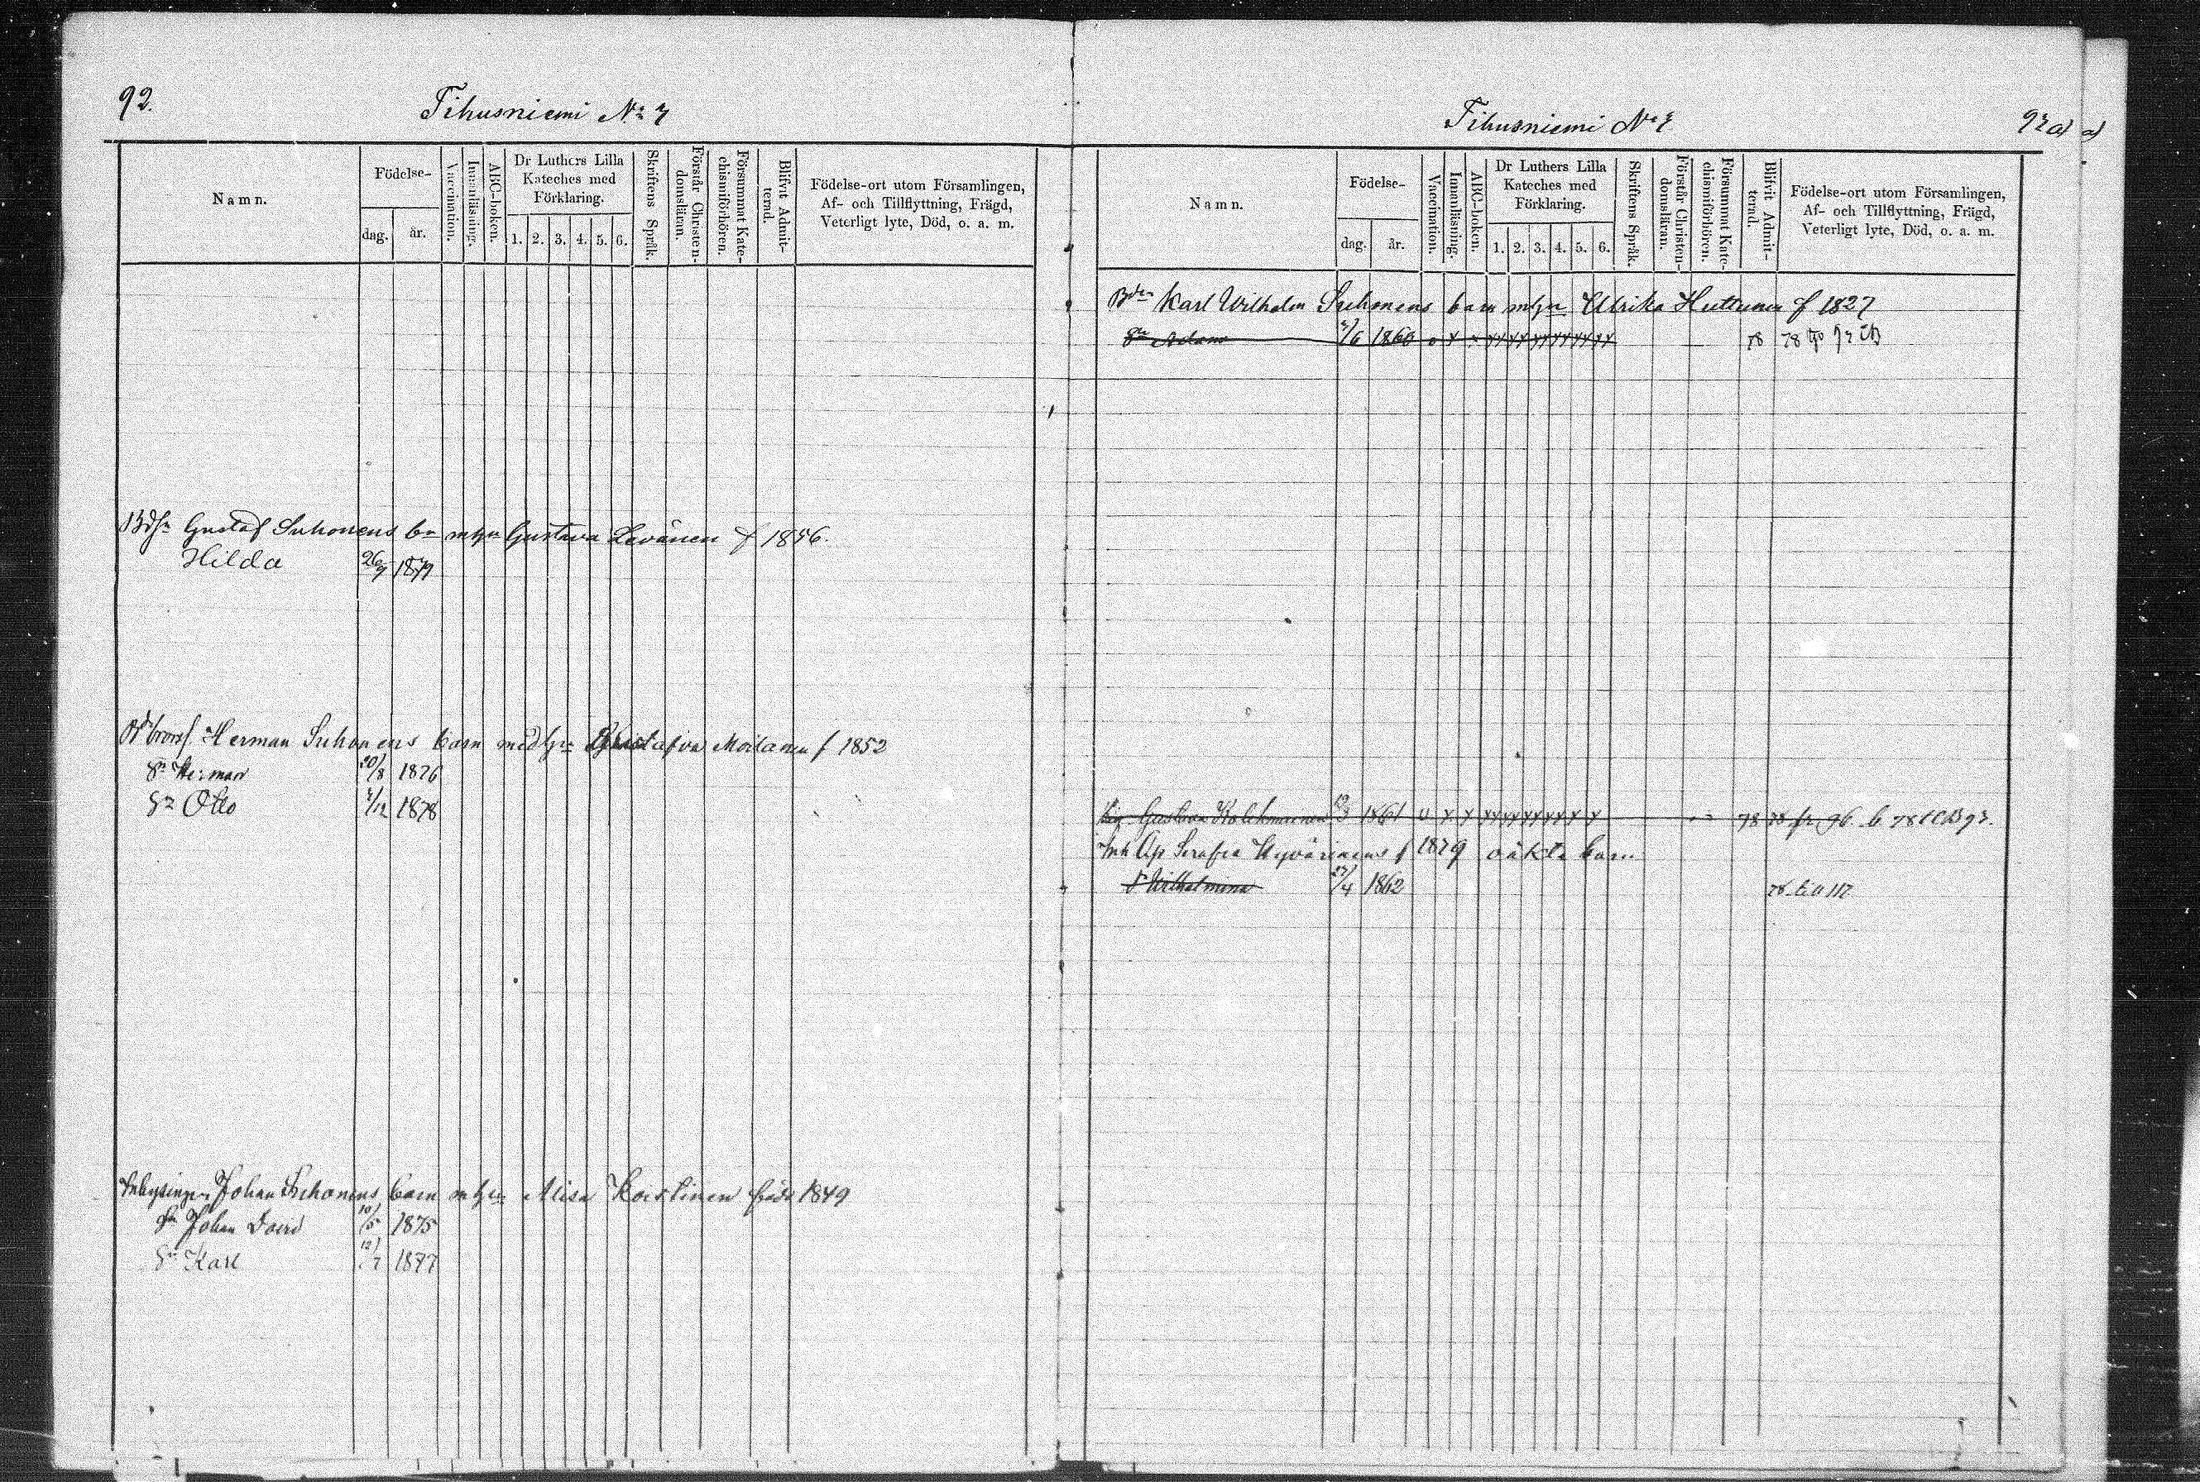 92.
Tihusniemi No 7
Namn.
Födelse-
dag.
år.
Vaccination.
Innanläsning.
ABC-boken.
Dr Luthers Lilla
Kateches med
Förklaring.
1. 2. 3. 4. 5. 6.
Skriftens Språk.
Förstår Christen-
domsläran.
Försummat Kate-
chismiförhören.
Blifvit Admit-
terad.
Födelse-ort utom Församlingen,
Af- och Tillflyttning, Frägd,
Veterligt lyte, Död, o. a. m.
Gustaf Suhonens bn mhu Gustava Levänen f 1856.
Hilda 26/7 1879
Herman Suhonens barn med hu Gustafva Moilanen f 1852
Sn Herman 20/8 1876
Sn Otto 1/12 1878
Johan Suhonens barn mhu Alisa Koistinen född 1849
Sn Johan David 10/5 1875
Sn Karl 12/7 1877
Tihusniemi No 7
92 a)
a)
Namn.
Födelse-
dag.
år.
Vaccination.
Innanläsning.
ABC-boken.
Dr Luthers Lilla
Kateches med
Förklaring.
1. 2. 3. 4. 5. 6.
Skriftens Språk.
Förstår Christen-
domsläran.
Försummat Kate-
chismiförhören.
Blifvit Admit-
terad.
Födelse-ort utom Församlingen,
Af- och Tillflyttning, Frägd,
Veterligt lyte, Död, o. a. m.
Karl Wilhelm Suhonens barn mhu Ulrika Huttunen f 1827
Sn Adam 1860 78 78
Gustava Kolehmainen 1861 78
Serafia Hyvärinens f 1829 oäkta barn
Wilhelmina 27/4 1862 till 112